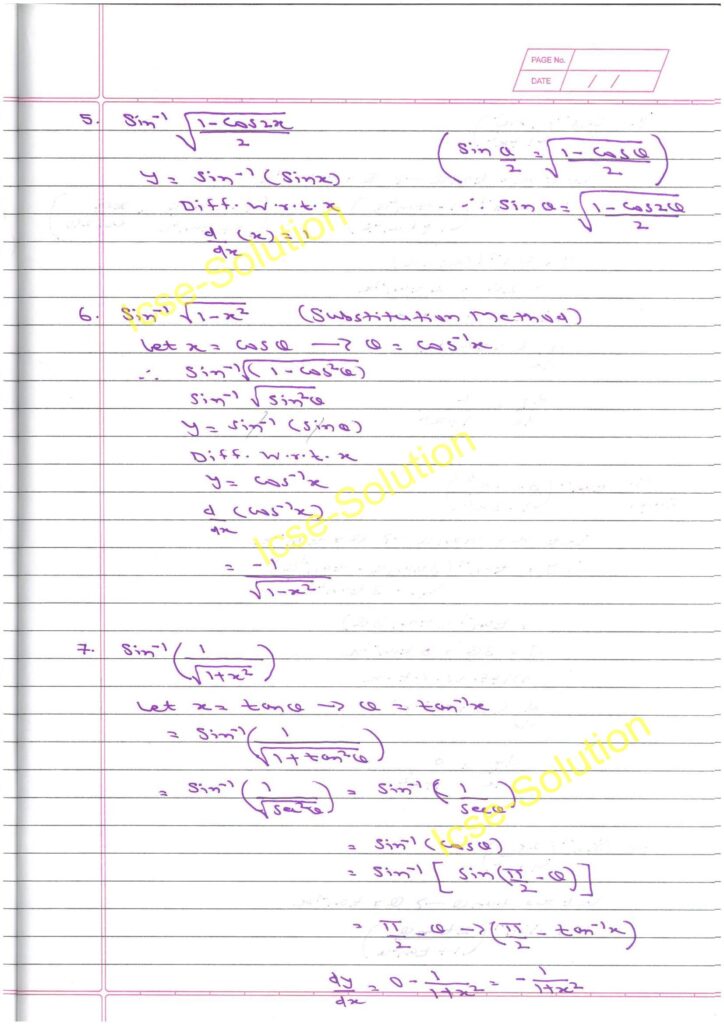 PAGE No.
DATE / /
5. Sin⁻¹ √(1 - cos2x / 2)
(Sin θ/2 = √(1 - cosθ / 2))
y = sin⁻¹ (sinx)
Diff. w.r.t. x
∴ sin θ = √(1 - cos2θ / 2)
d/dx (x) = 1
Icse-Solution
6. Sin⁻¹ √(1-x²) (Substitution Method)
Let x = cosθ → θ = cos⁻¹x
∴ Sin⁻¹√(1 - cos²θ)
Sin⁻¹ √sin²θ
y = sin⁻¹ (sinθ)
Diff. w.r.t. x
y = cos⁻¹x
Icse-Solution
d/dx (cos⁻¹x)
= -1/√(1-x²)
7. Sin⁻¹ (1/√(1+x²))
Let x = tanθ → θ = tan⁻¹x
= Sin⁻¹ (1/√(1+tan²θ))
= Sin⁻¹ (1/√sec²θ) = Sin⁻¹ (1/secθ)
Icse-Solution
= Sin⁻¹ (cosθ)
= Sin⁻¹ [sin(π/2 - θ)]
= π/2 - θ → (π/2 - tan⁻¹x)
dy/dx = 0 - 1/1+x² = - 1/1+x²